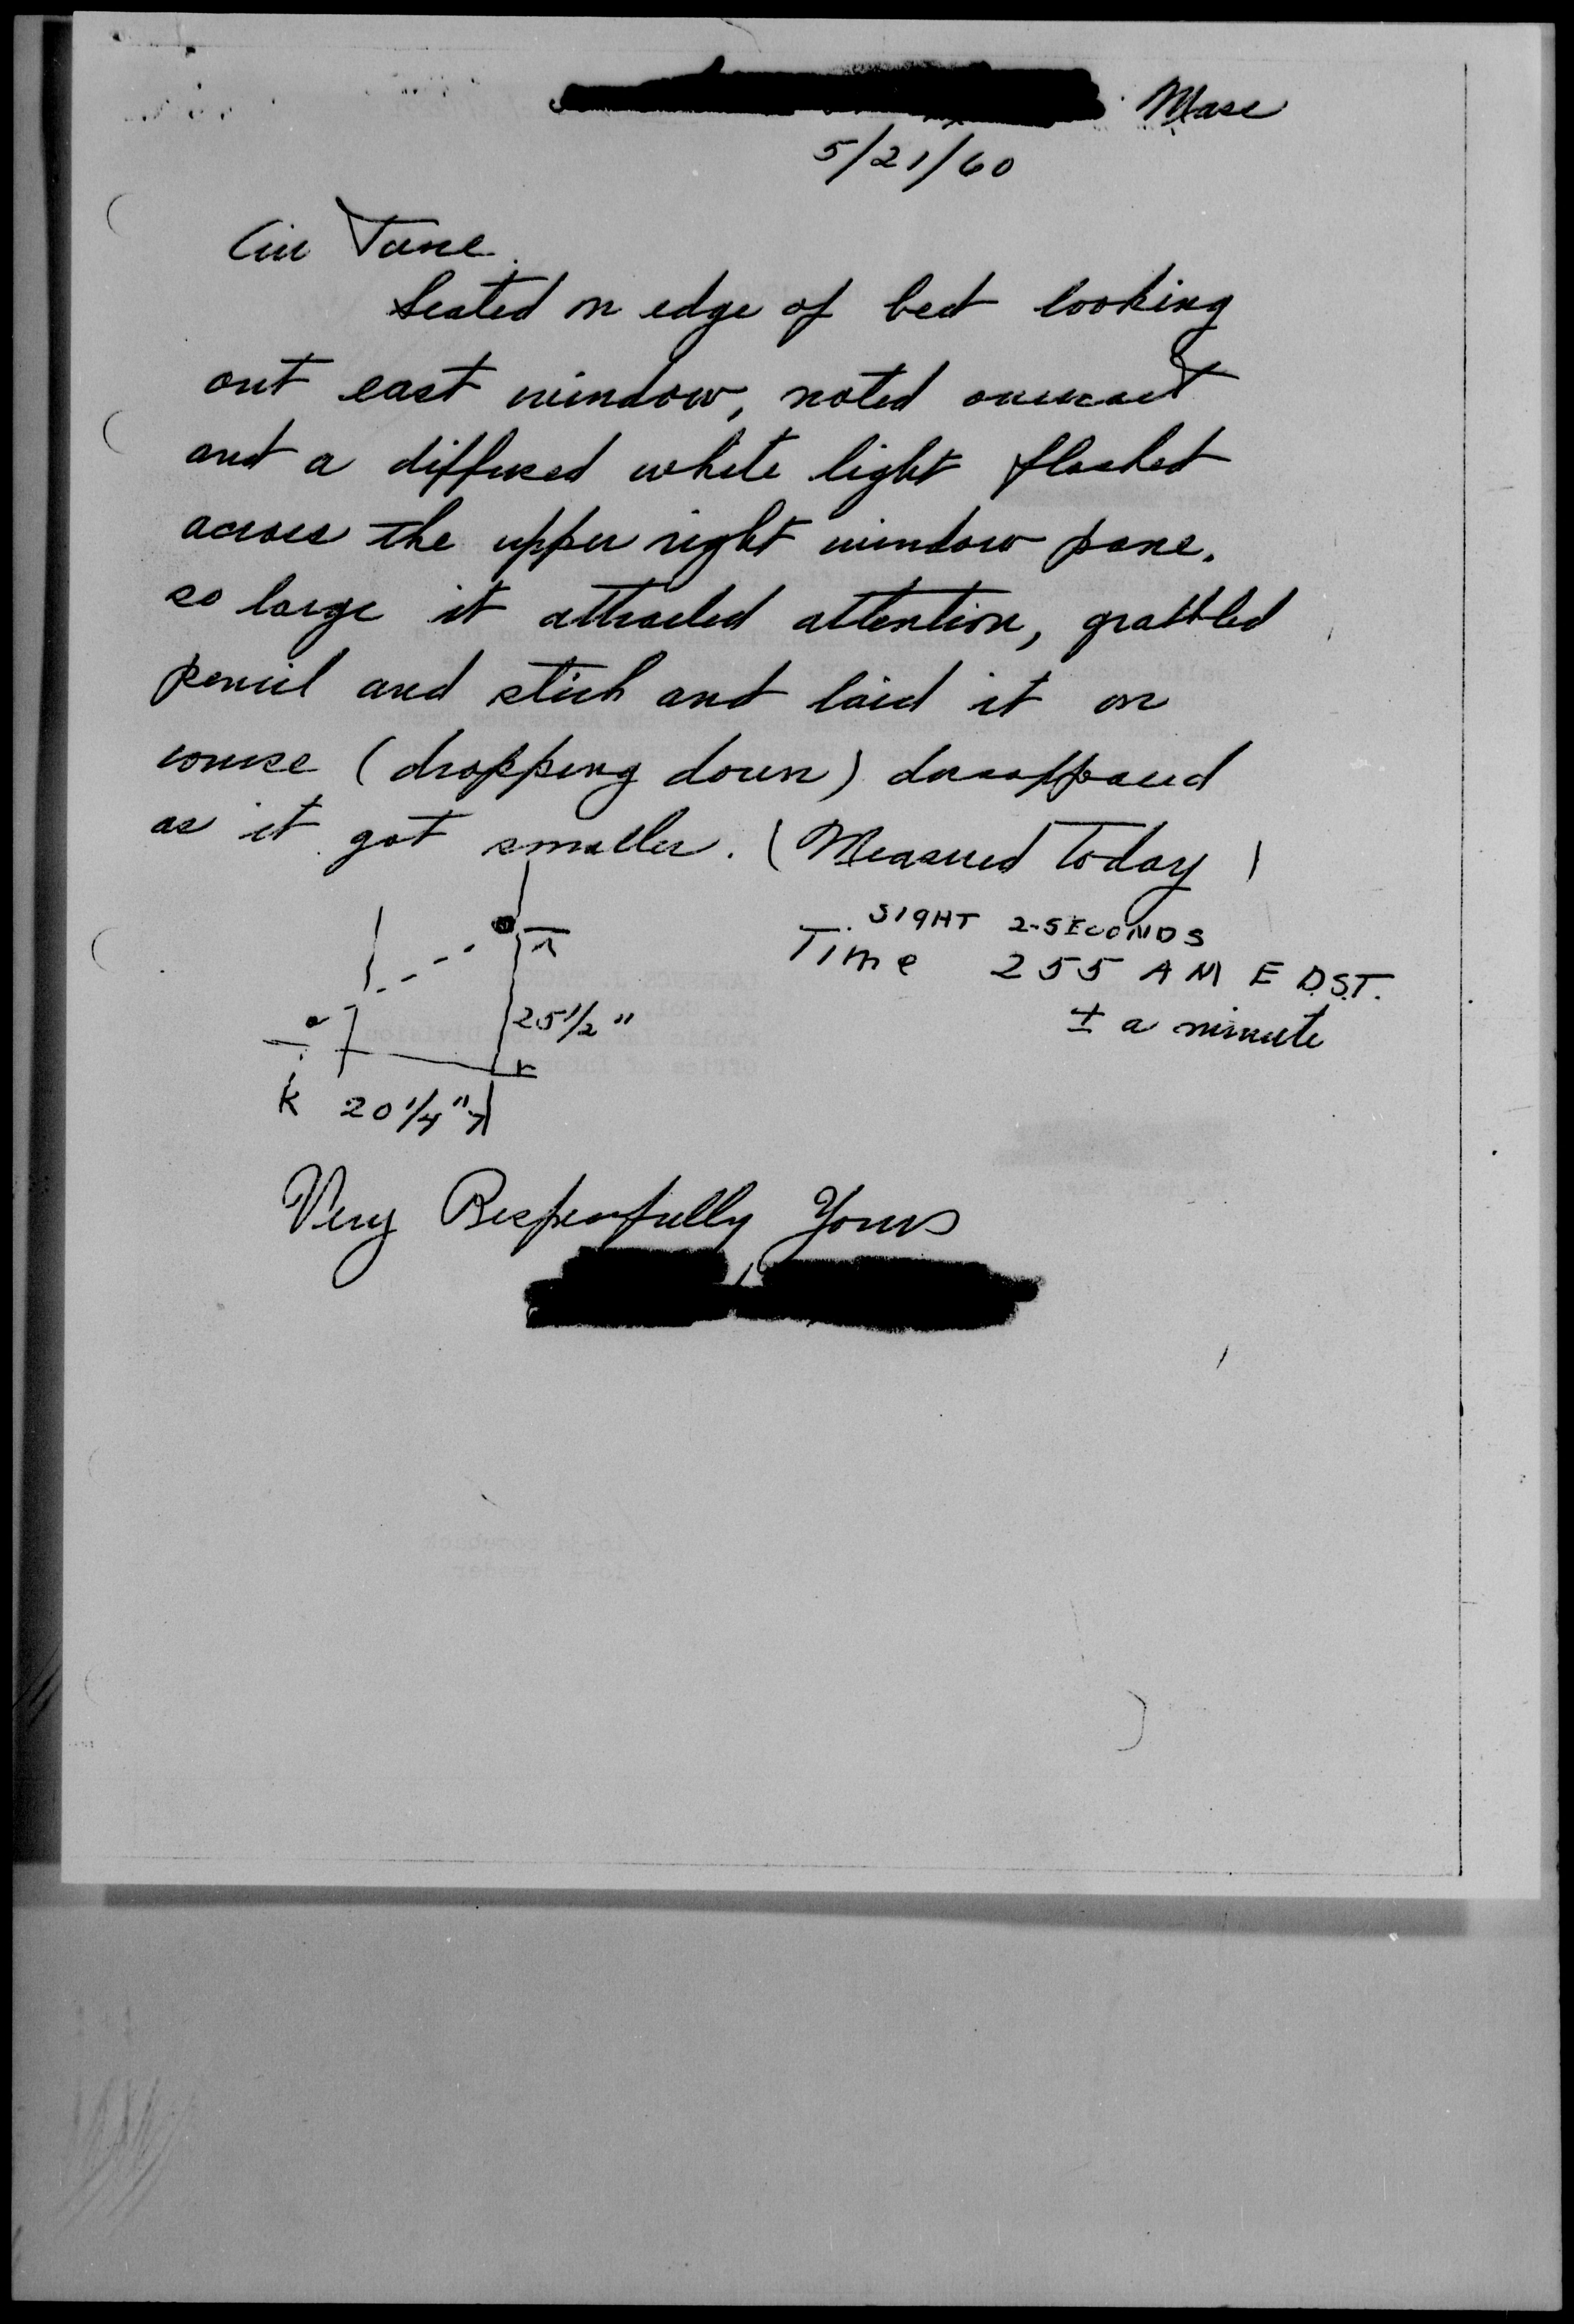 Mass
5/21/60
Air Force
Seated on edge of bed looking
out east window, noted overcast
and a diffused white light flashed
across the upper right window pane.
so large it attracted attention, grabbed
pencil and stick and laid it on
course (dropping down) dissappeared
as it got smaller. (Measured today)
SIGHT 2-SECONDS
Time 255 AM E D.S.T.
± a minute
25 1/2"
20 1/4"
Very Respectfully Yours